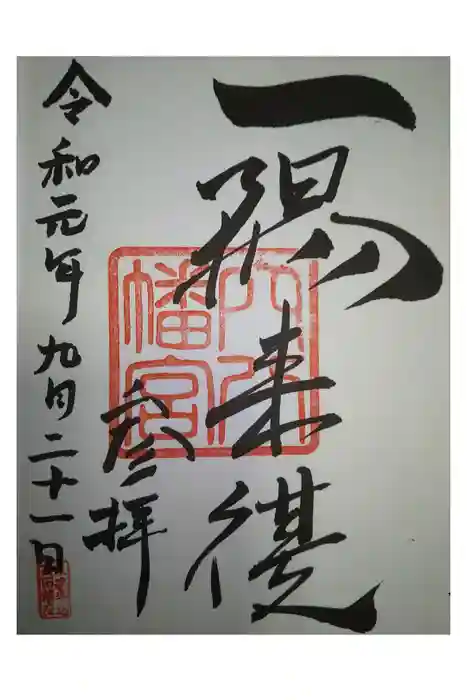 一陽来復
穴八
幡宮
参拝
令和元年九月二十一日